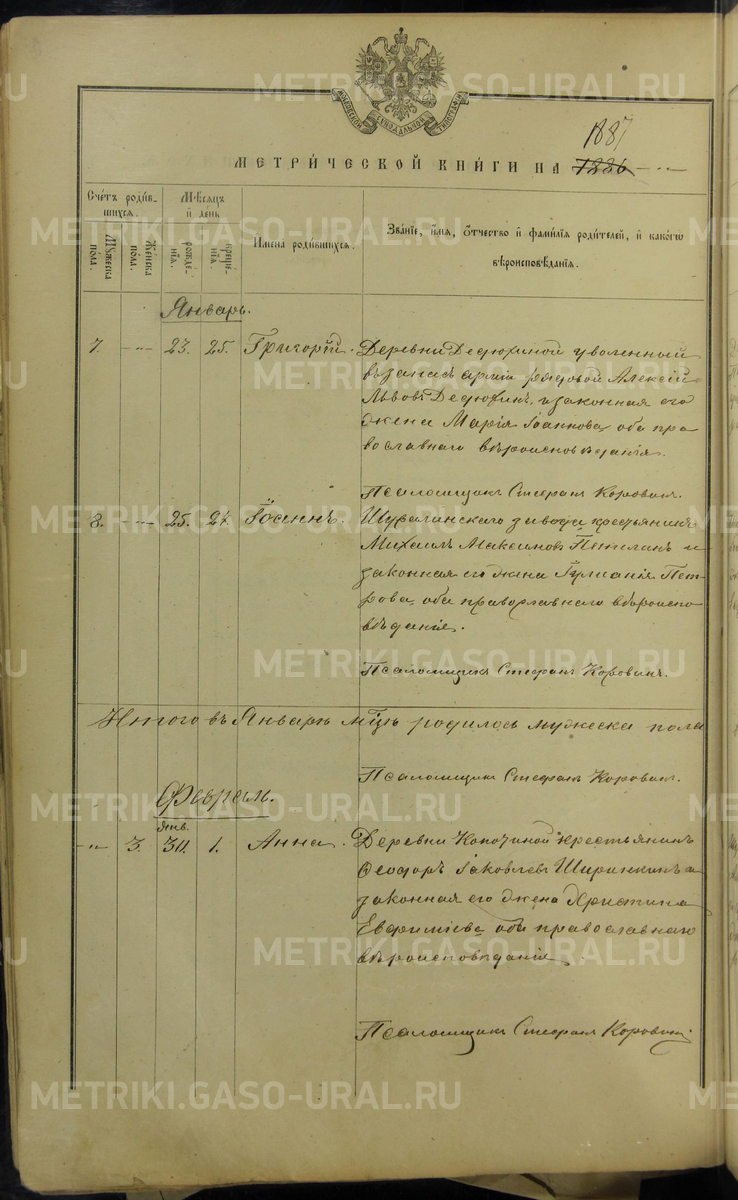 МОСКОВСКОЙ СѴНОДАЛЬНОЙ ТИПОГРАФІИ
1887
МЕТРИ́ЧЕСКОЙ КНИ́ГИ НА 1886
Счетъ роди́в-
шихся.
Му́жеска
по́ла.
Же́нска
по́ла.
Мѣсяцъ
и день
рожде́-
нія.
креще́-
нія.
Имена родившихся.
Зва́ніе, и́мя, о́тчество и фами́лія роди́телей, и како́го
вѣроисповѣ́данія.
Январь.
7. — „ — 23. 25. Григорій. Деревни Дедюхиной уволенный
въ запасъ арміи рядовой Алексѣй
Львовъ Дедюхинъ, и законная его
жена Марія Іоаннова, оба пра
вославнаго вѣроисповѣданія.
Псаломщикъ Стефанъ Коровинъ.
8. — „ — 25. 27. Іоаннъ. Шуралинскаго завода крестьянинъ
Михаилъ Максимовъ и
законная его жена Іуліанія Пет-
рова, оба православнаго вѣроиспо
вѣданія.
Псаломщикъ Стефанъ Коровинъ.
Итого въ Январѣ м҃цѣ родилось мужеска пола
Псаломщикъ Стефанъ Коровинъ.
Февраль.
Янв.
— „ 3. 30. 1. Анна. Деревни Копотиной крестьянинъ
Ѳеодоръ Іаковлевъ Ширинкинъ и
законная его жена Христина
Евфиміева, оба православнаго
вѣроисповѣданія
Псаломщикъ Стефанъ Коровинъ.
METRIKI.GASO-URAL.RU